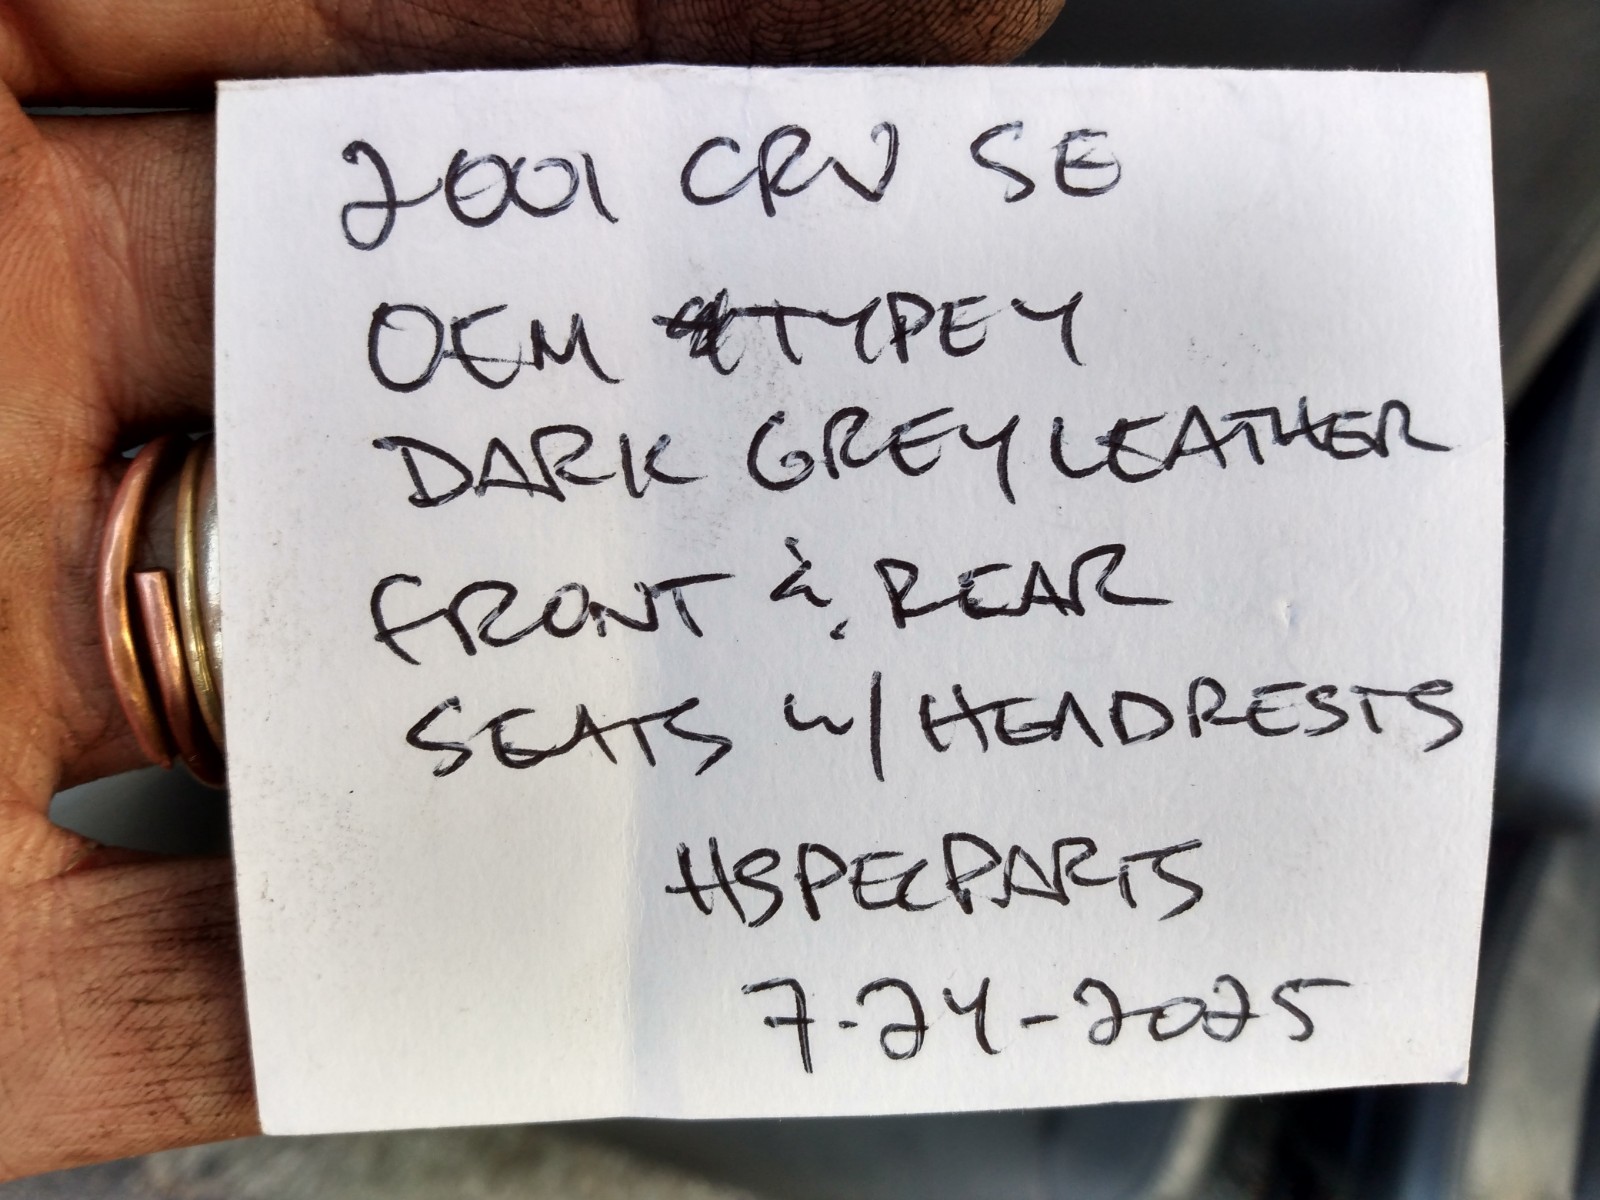 2001 CRV SE
OEM TYPE Y
DARK GREY LEATHER
FRONT & REAR
SEATS W/ HEADRESTS
HSPECPARTS
7-24-2025